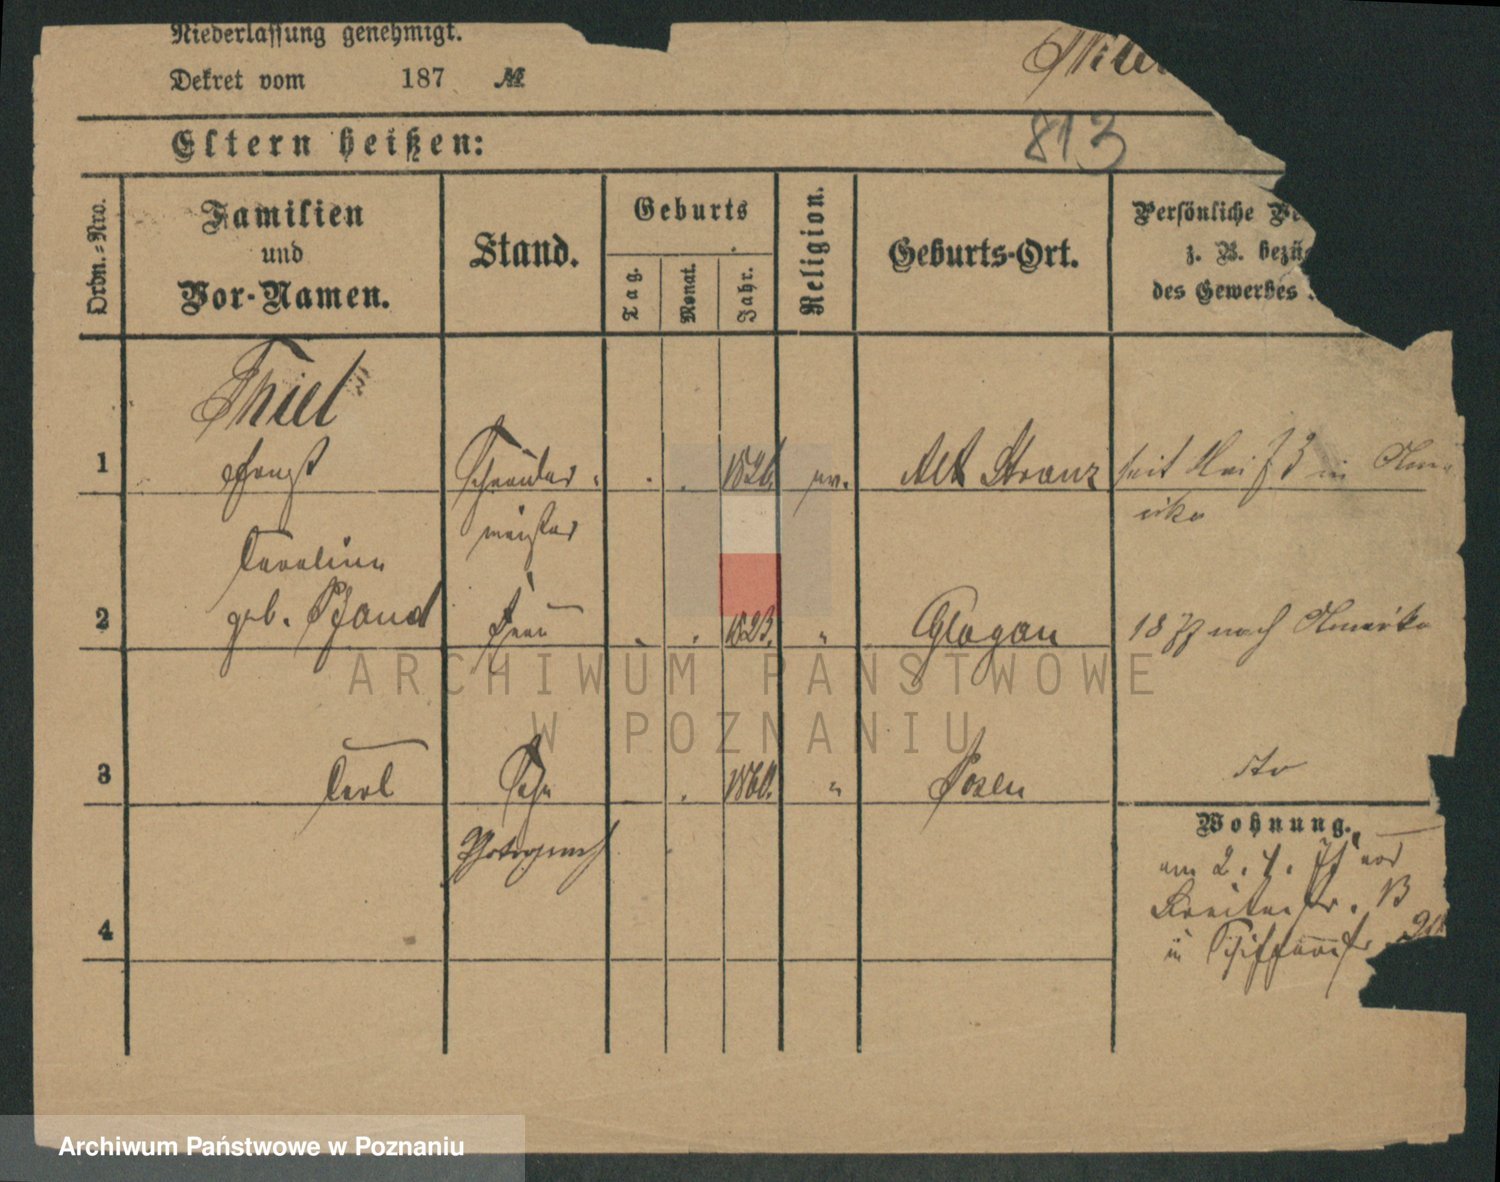 Niederlassung genehmigt.
Dekret vom 187 №
Thiel
813
Eltern heißen:
Ordn.=Nro.
Familien
und
Vor-Namen.
Stand.
Geburts
Tag.
Monat.
Jahr.
Religion.
Geburts-Ort.
Persönliche
z. B.
des Gewerbes
Thiel
1 Ernst Schneider- 1826. ev. Alt Kranz seit in Ame-
meister rika
Caroline
2 geb. Pfand Frau 1823. " Glogau 1877 nach Amerika
3 Carl Sohn 1860. " Posen dto
Photograph
Wohnung.
am 2. 4.
Breitestr.
4
ARCHIWUM PAŃSTWOWE
W POZNANIU
Archiwum Państwowe w Poznaniu